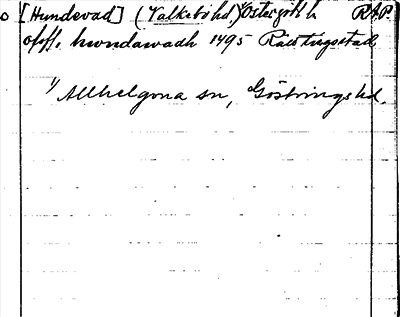 [Hundevad] (Valkebo hd.) Östergötl. R.A.P.
hwndawadh 1495 Rävtingstad
1) Allhelgona sn, Göstrings hd.